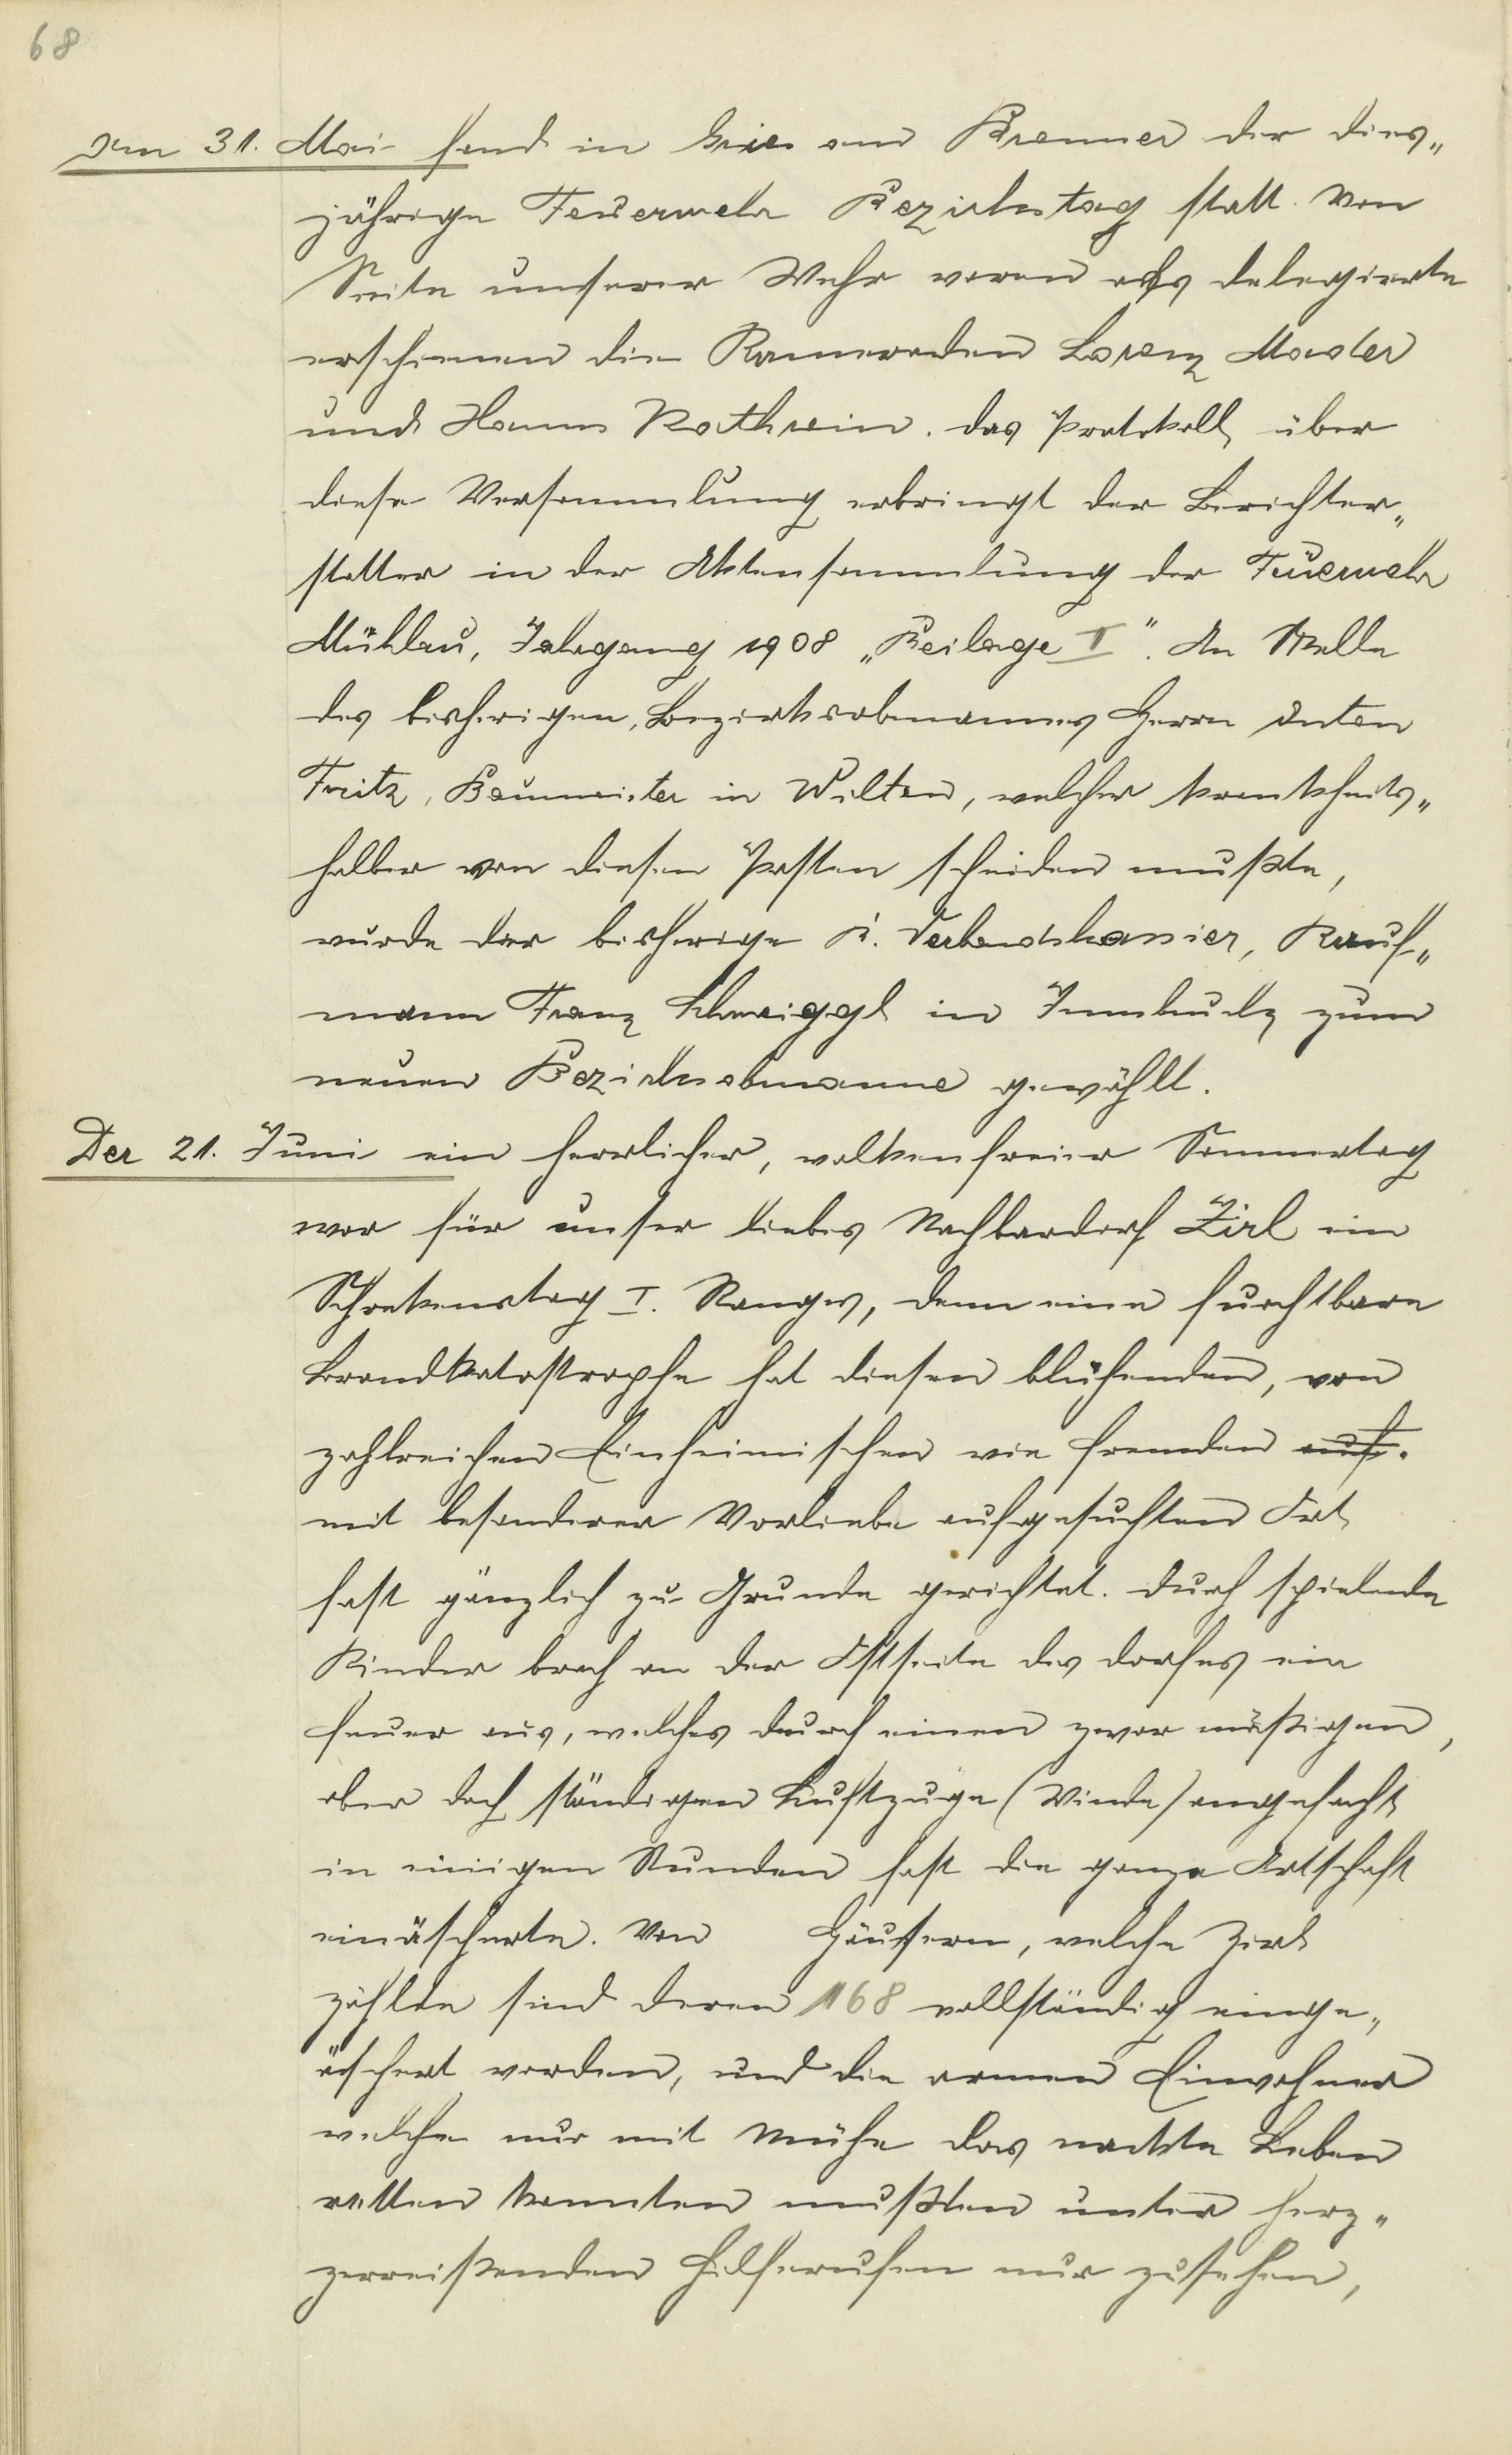 68
Am 31. Mai fand in Gries am Brenner der dies„
jährige Feuerwehr Bezirkstag statt. Von
Seite unserer Wehr waren als delegierte
erschienen die Kameraden Lorenz Mader
und Hanns Rathwein. das Protokoll über
diese Versammlung erbringt der Berichter„
statter in der Aktensammlung der Feuerwehr
Mühlau, Jahrgang 1908 „Beilage II". An Stelle
des bisherigen, Bezirksobmannes Herrn Anton
Fritz, Baumeister in Wilten, welcher krankheits„
halber von diesen Posten scheiden mußte,
wurde der bisherige B. Verbandskassier, Kauf„
mann Franz Schweiggl in Innsbruck zum
neuen Bezirksobmanne gewählt.
Der 21. Juni ein herrlicher, wolkenfreier Sommertag
war für unser liebes Nachbardorf Zirl ein
Schrekenstag I. Ranges, denn eine furchtbare
Brandkatastrophe hat diesen blühenden, von
zahlreichen Einheimischen wie fremden auf.
mit besonderer Vorliebe aufgesuchten Ort
fast gänzlich zu Grunde gerichtet. durch spielende
Kinder brach an der Ostseite des dorfes ein
feuer aus, welches durch einen zwar mäßigen,
aber doch ständigen Luftzuge (Winde) angefacht
in einigen Stunden fast die ganze Ortschaft
einäscherte. Von Häusern, welche Zirl
zählte sind deren 168 vollständig einge„
äschert worden, und die armen Einwohner
welche nur mit Mühe das nackte Leben
retten konnten mußten unter herz„
zerreißenden Hilferufen nur zusehen,